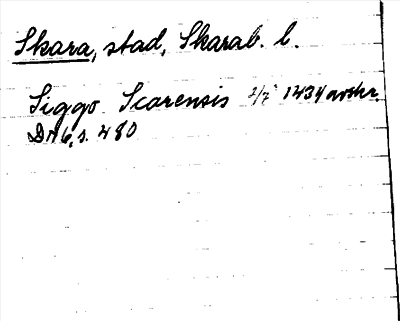 Skara, stad, Skarab. l.
Siggo Scarensis 2/7 1434 avskr.
DN 6, s. 480